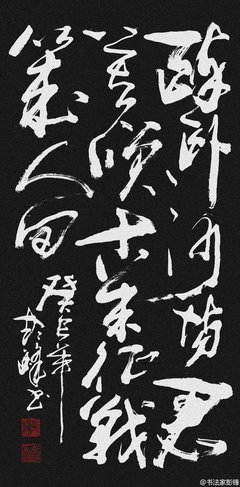 醉卧沙場君
莫笑古来征戰
幾人回
癸巳年
彭鋒书
@书法家彭锋